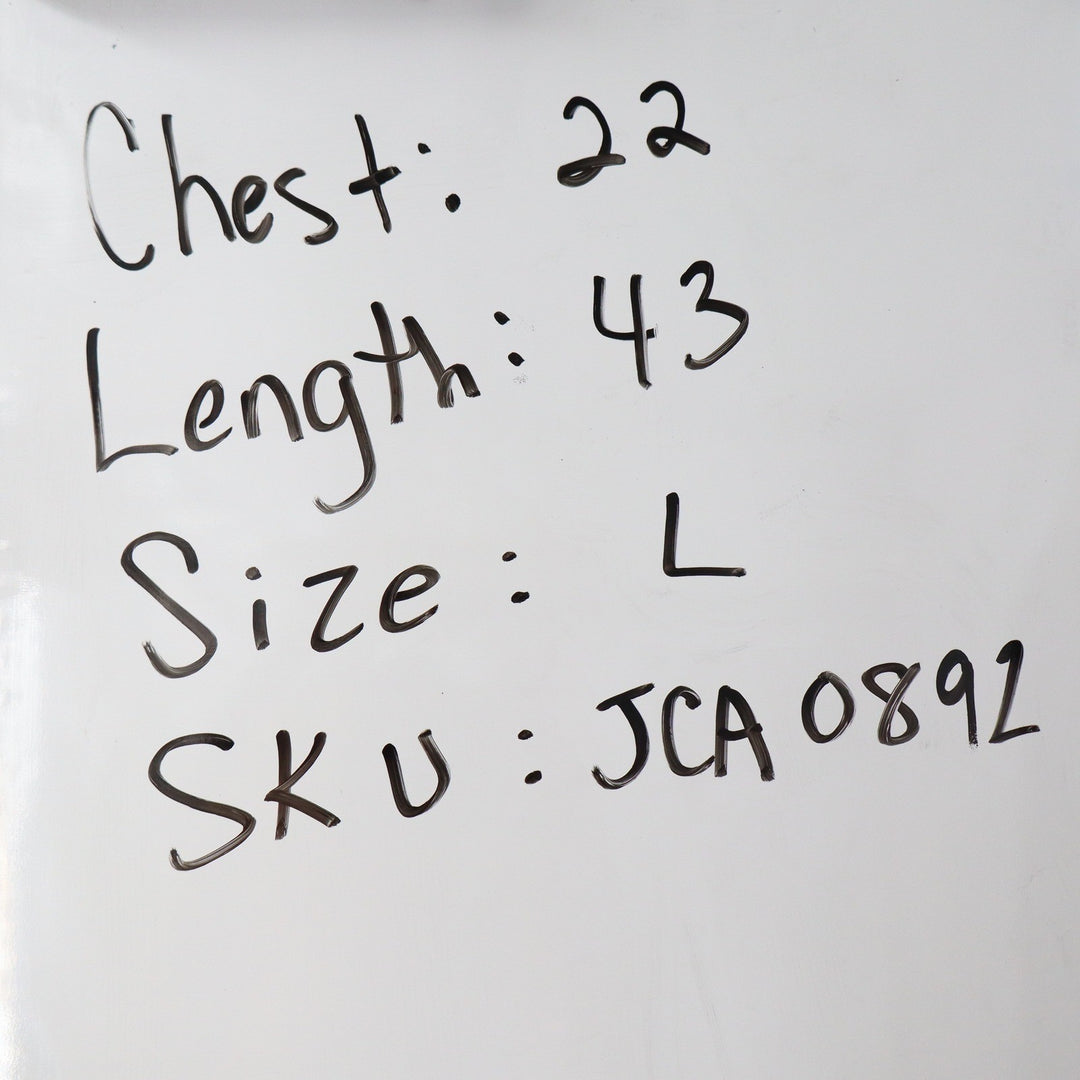 Chest: 22
Length: 43
Size: L
SKU: JCA0892